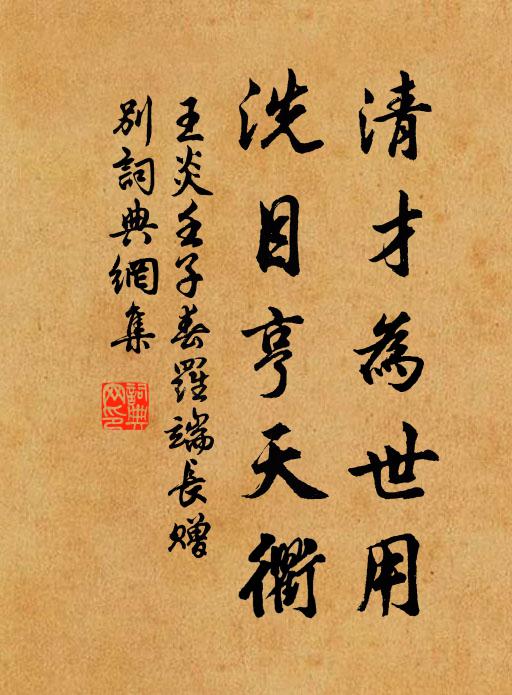 清才為世用
洗目亨天衢
王炎壬子春羅端長贈
別詞典網集
詞典
网印